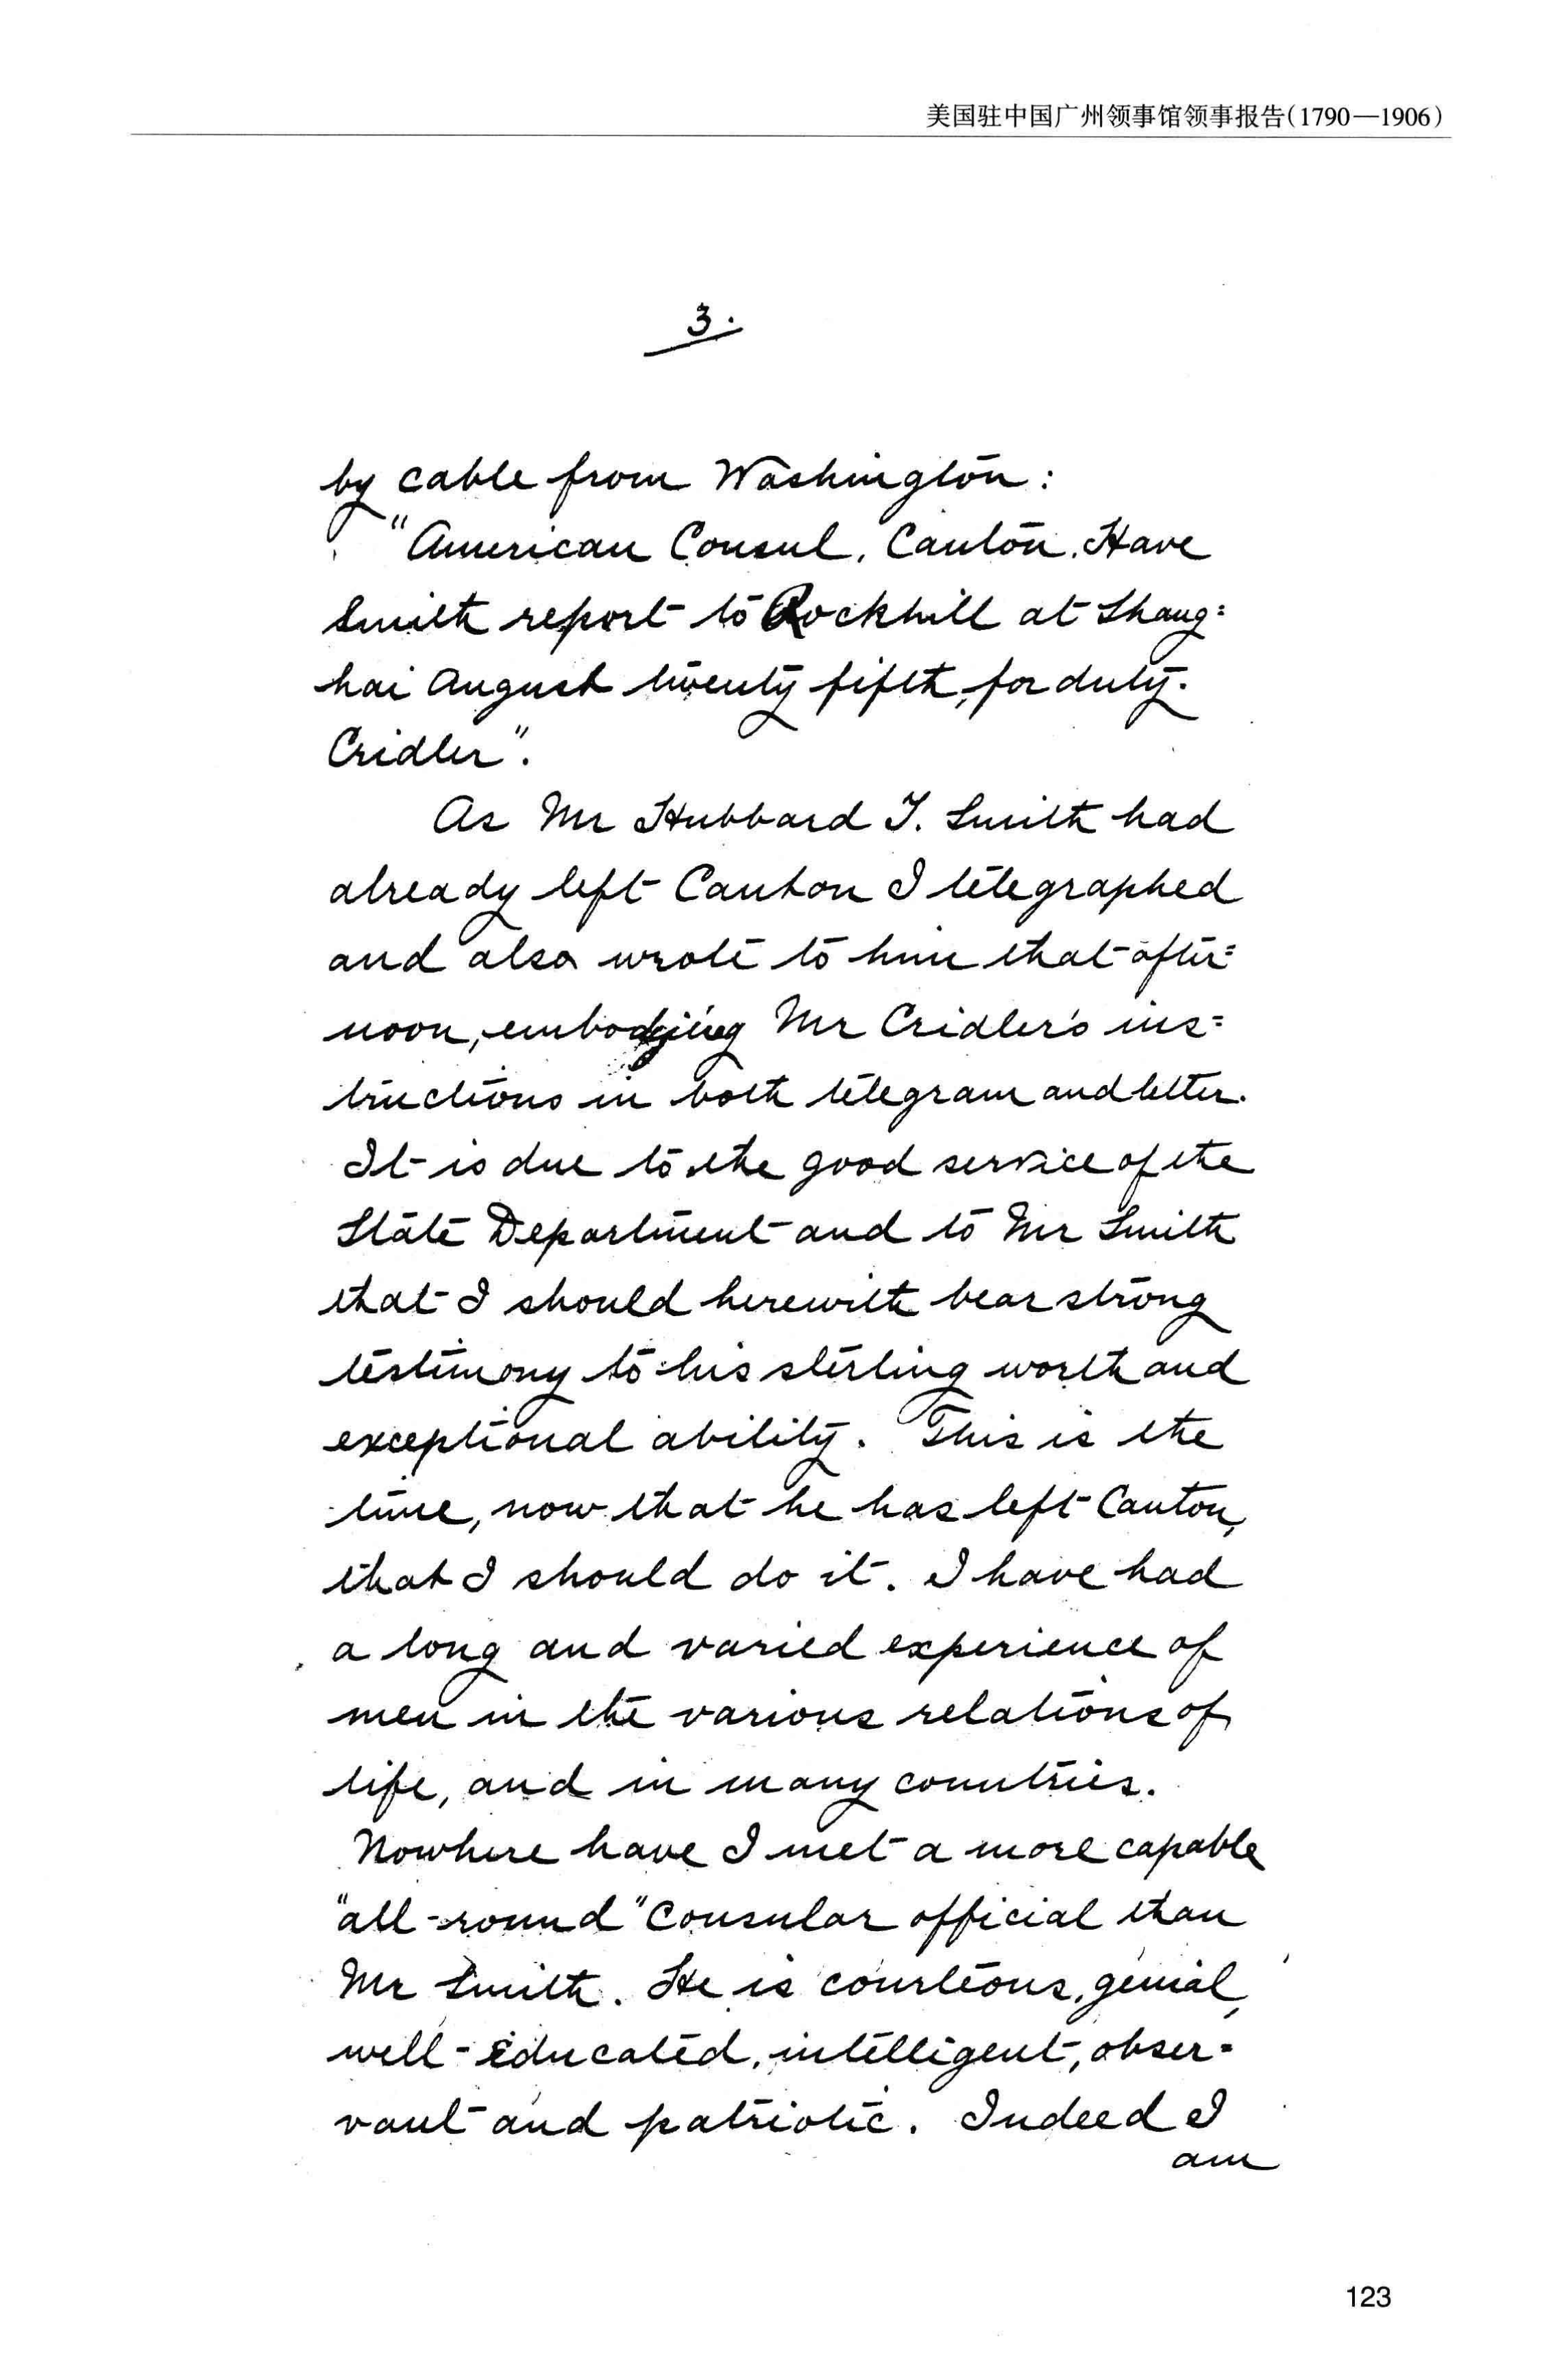 美国驻中国广州领事馆领事报告(1790—1906)
3.
by cable from Washington:
"American Consul, Canton. Have
Smith report to Rockhill at Shang=
hai August twenty fifth, for duty.
Cridler".
As Mr Hubbard T. Smith had
already left Canton I telegraphed
and also wrote to him that after=
noon, embodying Mr Cridler's ins=
tructions in both telegram and letter.
It is due to the good service of the
State Department and to Mr Smith
that I should herewith bear strong
testimony to his sterling worth and
exceptional ability. This is the
time, now that he has left Canton,
that I should do it. I have had
a long and varied experience of
men in the various relations of
life, and in many countries.
Nowhere have I met a more capable
"all-round" Consular official than
Mr Smith. He is courteous, genial,
well-educated, intelligent, obser-
vant and patriotic. Indeed I
am
123